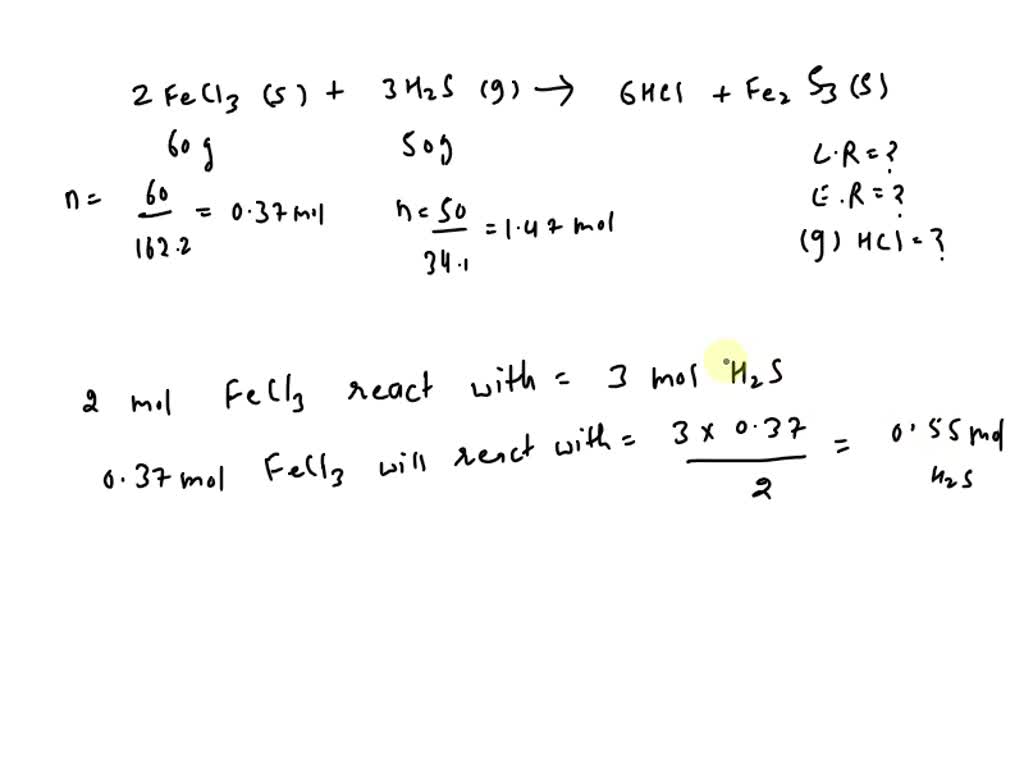 2 FeCl3 (s) + 3H2S (g) → 6HCl + Fe2 S3 (s)
60 g 50g L.R = ?
n = 60/162.2 = 0.37 mol n = 50/34.1 = 1.47 mol E.R = ?
(g) HCl = ?
2 mol FeCl3 react with = 3 mol H2S
0.37 mol FeCl3 will react with = 3 x 0.37/2 = 0.55 mol
H2S